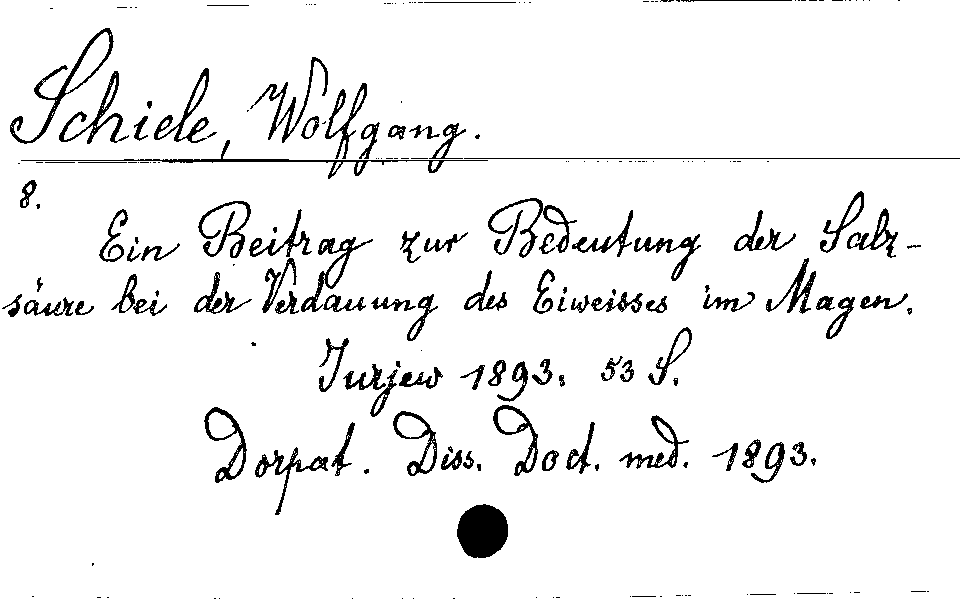 Schiele, Wolfgang.
8.
Ein Beitrag zur Bedeutung der Salz-
säure bei der Verdauung des Eiweisses im Magen.
Jurjew 1893. 53 S.
Dorpat. Diss. Doct. med. 1893.